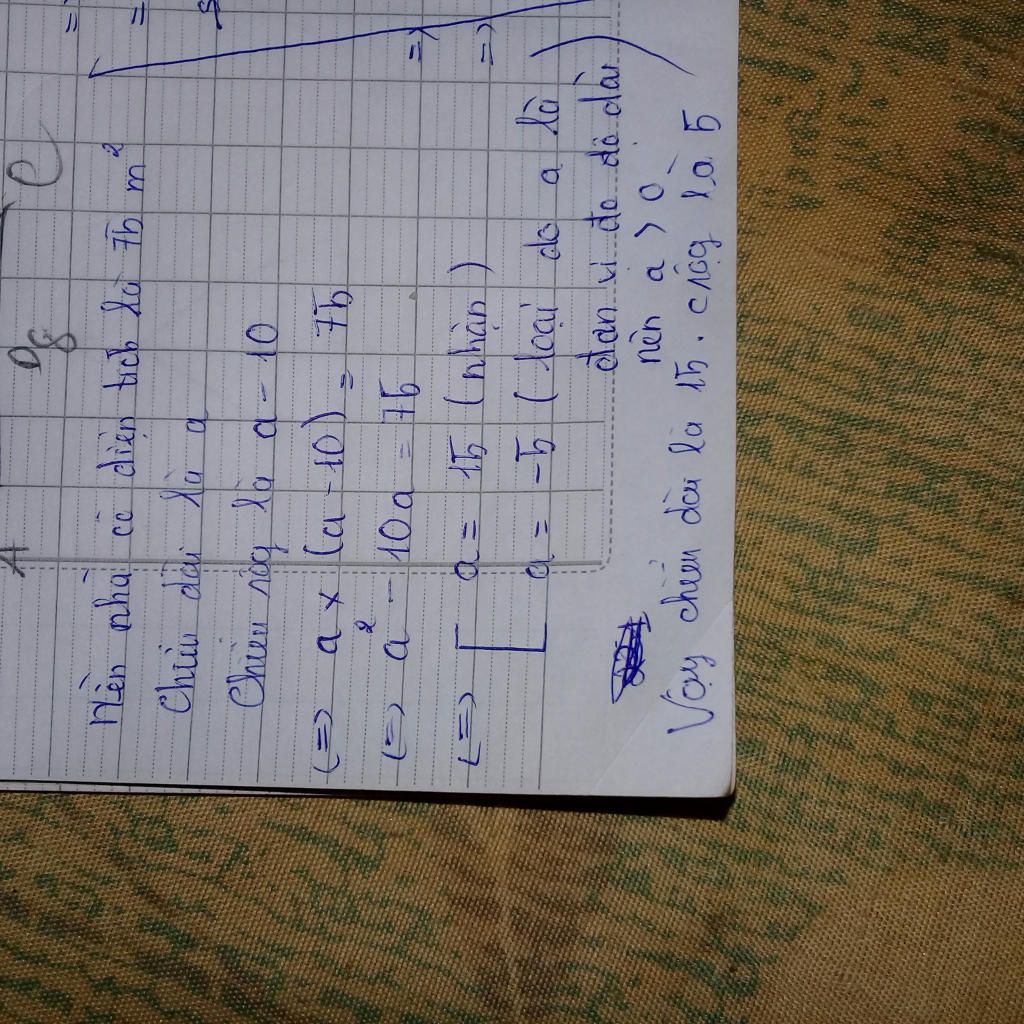 A
D
8
C
Nền nhà có diện tích là 75 m²
Chiều dài là a
Chiều rộg là a - 10
(=) a x (a - 10) = 75
(=) a² - 10a = 75
(=) [ a = 15 (nhận)
a = -5 (loại do a là
đơn vị đo độ dài
nên a > 0
Vậy chiều dài là 15. crộg là 5
=)
=)